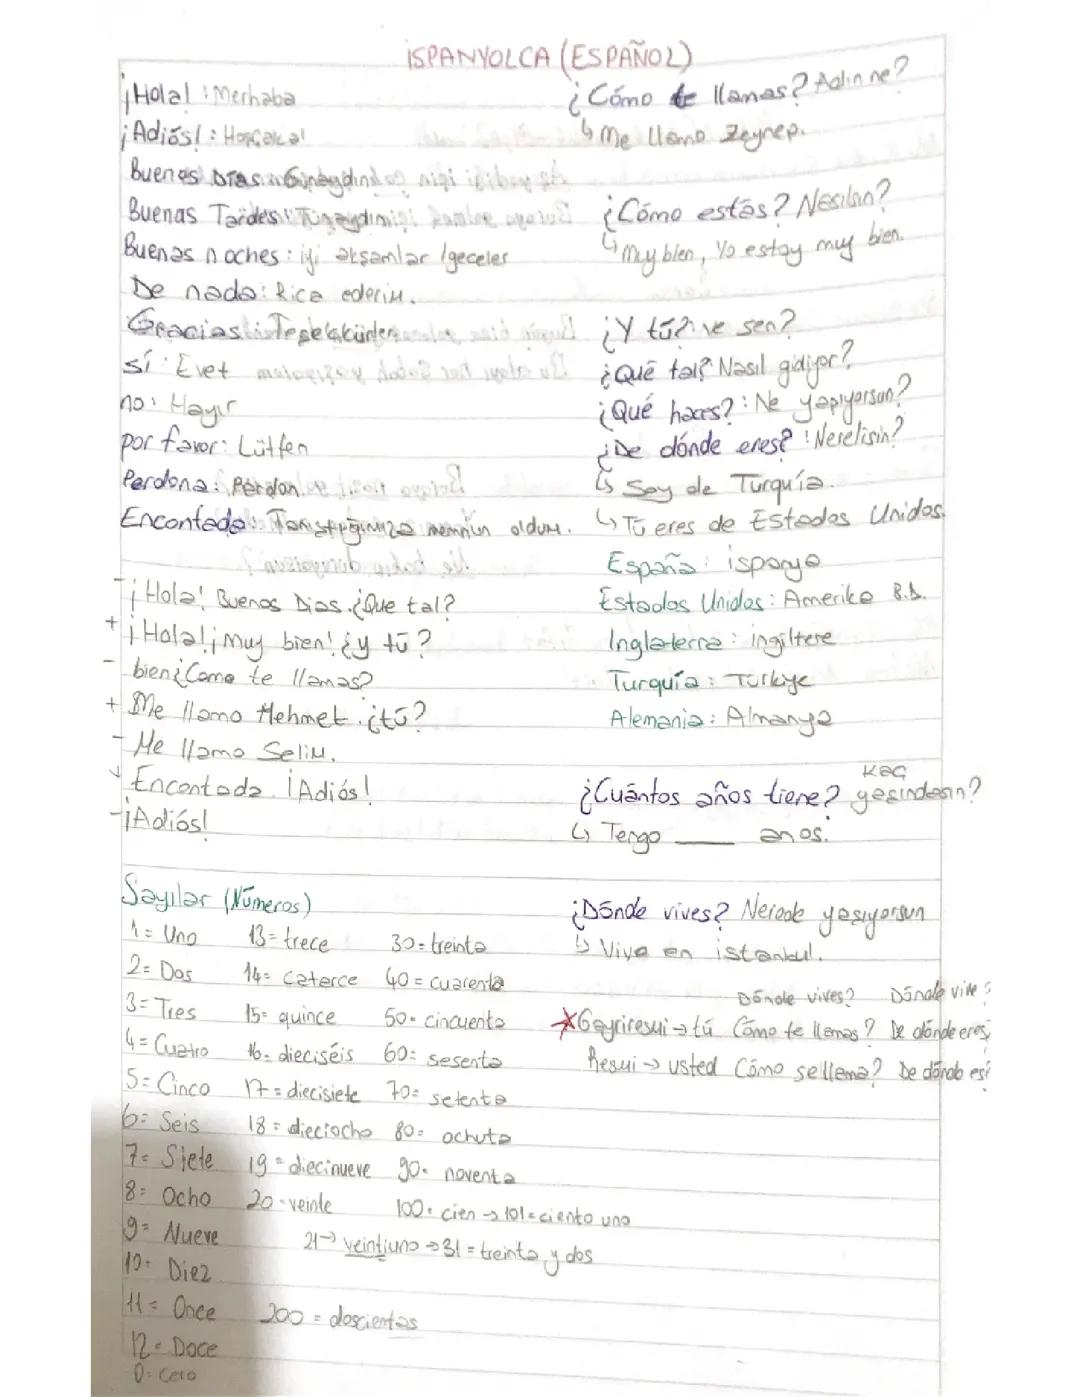 İSPANYOLCA (ESPAÑOL)
¡Hola! : Merhaba
¡Adiós! : Hoşçakal
Buenas Dias : Günaydın
Buenas Tardes : Tünaydın
Buenas noches : iyi akşamlar / geceler
De nada : Rica ederim.
Gracias : Teşekkürler
sí : Evet
no : Hayır
por favor : Lütfen
Perdona : Pardon
Encantada : Tanıştığımıza memnun oldum.
¿Cómo te llamas? Adın ne?
↳ Me llamo Zeynep.
¿Cómo estás? Nasılsın?
↳ Muy bien, Yo estoy muy bien.
¿Y tú? : ve sen?
¿Qué tal? Nasıl gidiyor?
¿Qué haces? : Ne yapıyorsun?
¿De dónde eres? : Nerelisin?
↳ Soy de Turquía.
↳ Tú eres de Estados Unidos.
España : ispanya
Estados Unidos : Amerika B.D.
Inglaterra : ingiltere
Turquía : Türkiye
Alemania : Almanya
- ¡Hola! Buenos Dias. ¿Que tal?
+ ¡Hola! ¡Muy bien! ¿y tú?
- bien ¿Como te llamas?
+ Me llamo Mehmet. ¿tú?
- Me llamo Selim.
+ Encantada. ¡Adiós!
- ¡Adiós!
¿Cuántos años tiene? kaç yaşındasın?
↳ Tengo ____ anos.
Sayılar (Números)
1 = Uno
2 = Dos
3 = Tres
4 = Cuatro
5 = Cinco
6 = Seis
7 = Siete
8 = Ocho
9 = Nueve
10 = Diez
11 = Once
12 = Doce
0 = Cero
13 = trece
14 = catorce
15 = quince
16 = dieciséis
17 = diecisiete
18 = dieciocho
19 = diecinueve
20 = veinte
30 = treinta
40 = cuarenta
50 = cincuenta
60 = sesenta
70 = setenta
80 = achuta
90 = noventa
100 = cien → 101 = ciento uno
21 → veintiuno → 31 = treinta y dos
200 = doscientas
¿Dónde vives? Nerede yaşıyorsun
↳ Vivo en istanbul.
Dónde vives? Dónde vive?
* Gayriresmi → tú Cómo te llamas? De dónde eres?
Resmi → usted Cómo se llama? De dónde es?